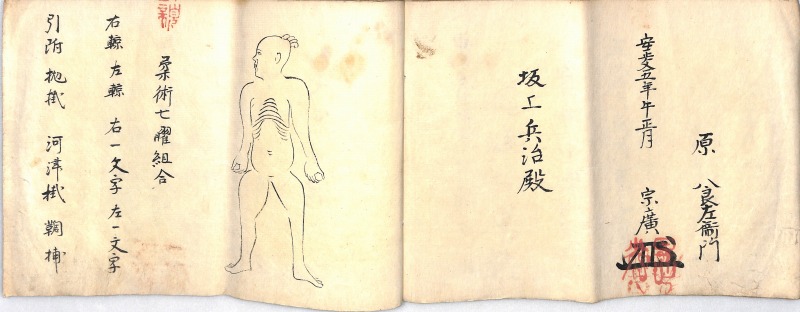 原 八良左衛門
安政五年午正月 宗廣
坂上兵治殿
柔術七曜組合
右轅 左轅 右一文字 左一文字
引附 抛掛 河津掛 鞠捕